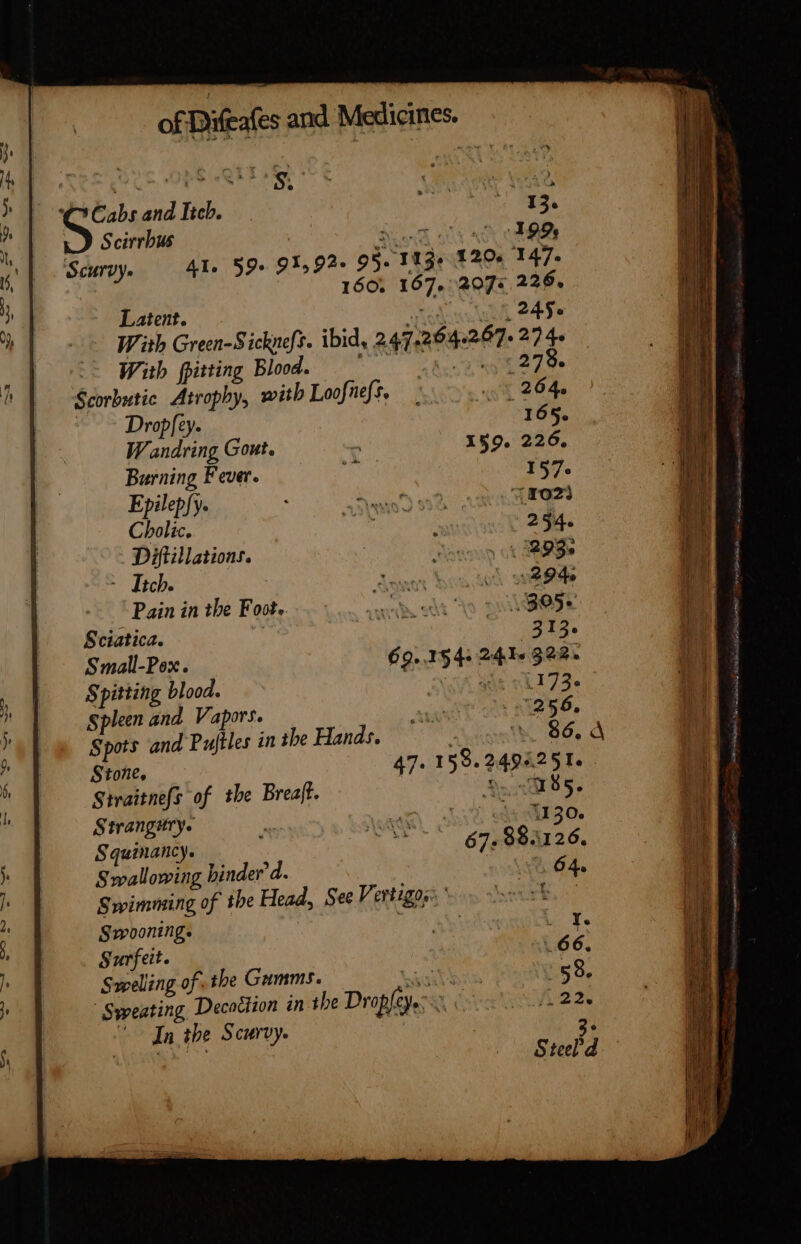 of Diſeaſes and Medicines.
S.
SCabs and Itch. 13.
Scirrhus 199.
Scurvy. 41. 59. 91, 92. 95. 113. 120. 147.
160. 167. 207. 226.
Latent. 245.
With Green-Sickneſs. ibid. 247. 264. 267. 274.
With ſpitting Blood. 278.
Scorbutic Atrophy, with Looſneſs. 264.
Dropſey. 165.
Wandring Gout. 159. 226.
Burning Fever. 157.
Epilepſy. 102.
Cholic. 254.
Diſtillations. 293.
Itch. 294.
Pain in the Foot. 305.
Sciatica. 313.
Small-Pox. 69. 154. 241. 322.
Spitting blood. 173.
Spleen and Vapors. 256.
Spots and Puſtles in the Hands. 86.
Stone. 47. 158. 249. 251.
Straitneſs of the Breaſt. 185.
Strangury. 130.
Squinancy. 67. 88. 126.
Swallowing hinder'd. 64.
Swimming of the Head, See Vertigo.
Swooning. 1.
Surfeit. 66.
Swelling of the Gumms. 58.
Sweating Decoction in the Dropſey. 22.
In the Scurvy. 3.
Steel'd